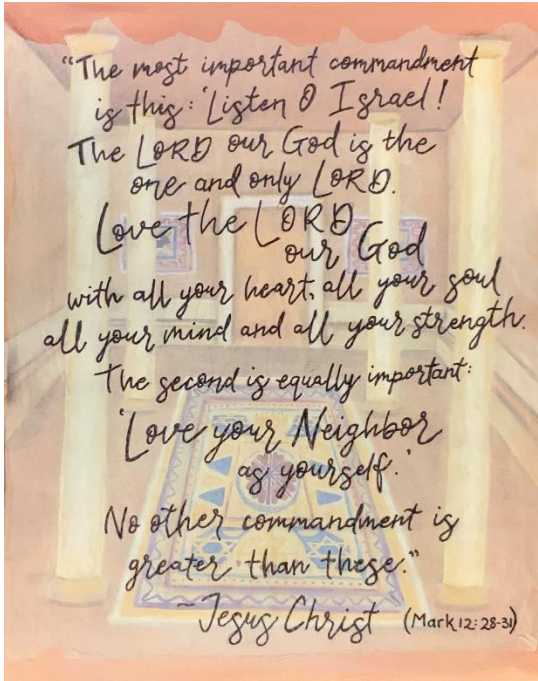 “The most important commandment
is this: ‘Listen O Israel!
The LORD our God is the
one and only LORD.
Love the LORD
our God
with all your heart, all your soul
all your mind and all your strength.
The second is equally important:
‘Love your Neighbor
as yourself.’
No other commandment is
greater than these.”
~Jesus Christ (Mark 12:28-31)